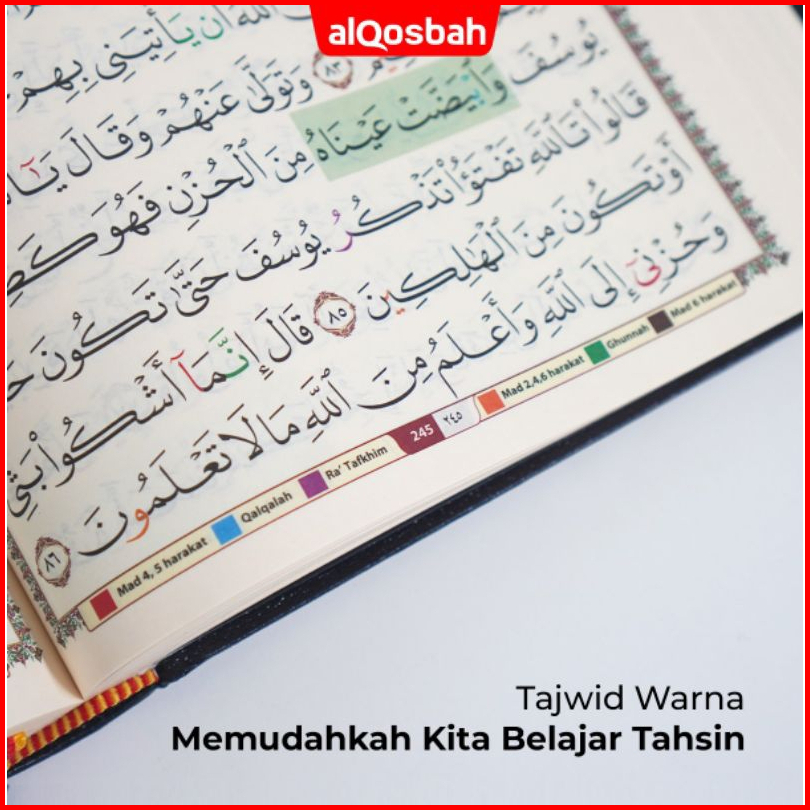 alQosbah
اللَّهُ أَنْ يَأْتِيَنِي بِهِمْ
٨٣ وَتَوَلَّىٰ عَنْهُمْ وَقَالَ
يُوسُفَ وَابْيَضَّتْ عَيْنَاهُ مِنَ الْحُزْنِ فَهُوَ
قَالُوا تَاللَّهِ تَفْتَؤُا تَذْكُرُ يُوسُفَ حَتَّىٰ تَكُونَ
أَوْ تَكُونَ مِنَ الْهَالِكِينَ ٨٥ قَالَ إِنَّمَا أَشْكُوا بَثِّي
وَحُزْنِي إِلَى اللَّهِ وَأَعْلَمُ مِنَ اللَّهِ مَا لَا تَعْلَمُونَ ٨٦
Mad 4, 5 harakat Qalqalah Ra' Tafkhim 245 ٢٤٥ Mad 2,4,6 harakat Ghunnah Mad 6 harakat
Tajwid Warna
Memudahkah Kita Belajar Tahsin